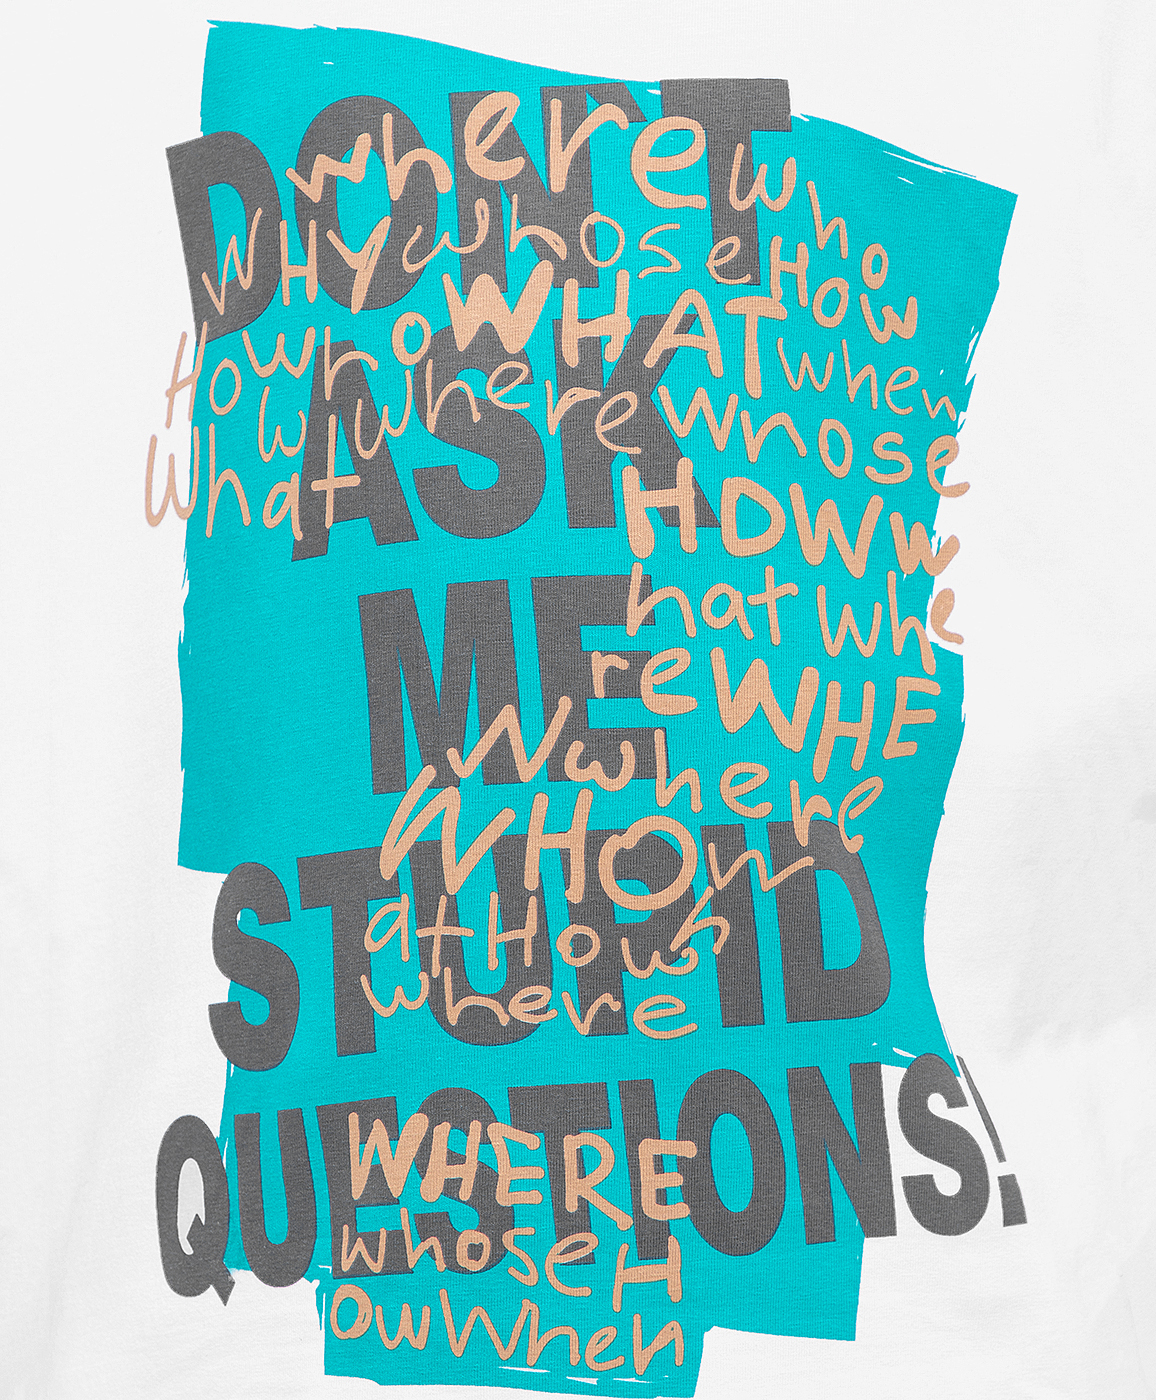 DON'T
ASK
ME
STUPID
QUESTIONS!
where who
WHY whose HOW
How who WHAT when
w where whose
What
HOW w
hat whe
re WHE
N where
WHO w
at How h
where
WHERE
whose H
ow When